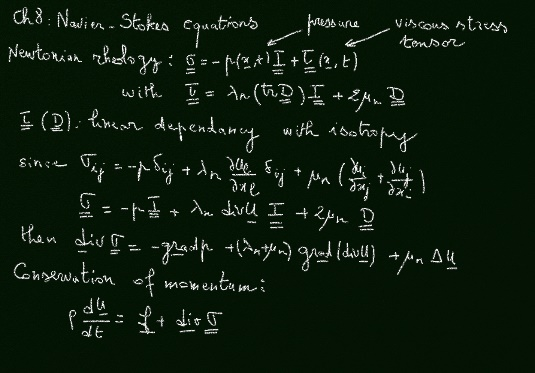 Ch 8: Navier-Stokes equations
pressure
viscous stress tensor
Newtonian rheology: σ = -p(x,t) I + τ(x,t)
with τ = λₙ(tr D) I + 2μₙ D
τ(D): linear dependancy with isotropy
since σij = -p δij + λₙ ∂uℓ/∂xℓ δij + μₙ (∂ui/∂xj + ∂uj/∂xi)
σ = -p I + λₙ div u I + 2μₙ D
then div σ = -grad p + (λₙ+μₙ) grad(div u) + μₙ Δu
Conservation of momentum:
ρ du/dt = f + div σ